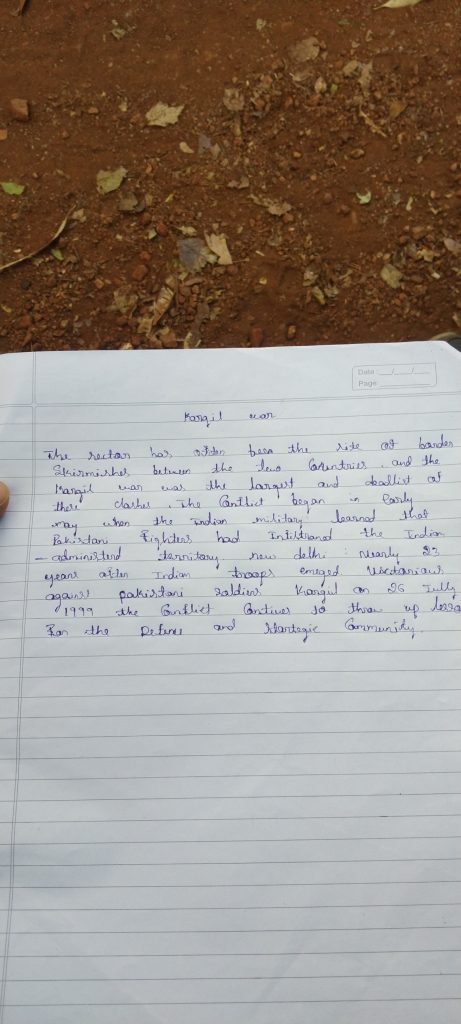 Date __/__/__
Page
Kargil war
The sector has often been the site of border
Skirmishes between the two Countries, and the
Kargil war was the largest and deadlist of
these clashes. The Conflict began in Early
may when the Indian military learned that
Pakistani Fighters had the Indian
- administerd territory new delhi : Nearly 23
years after Indian troops emeged
against pakistani Soldiers Kargil on 26
1999 the Conflict to throw up
For the Defense and Community.